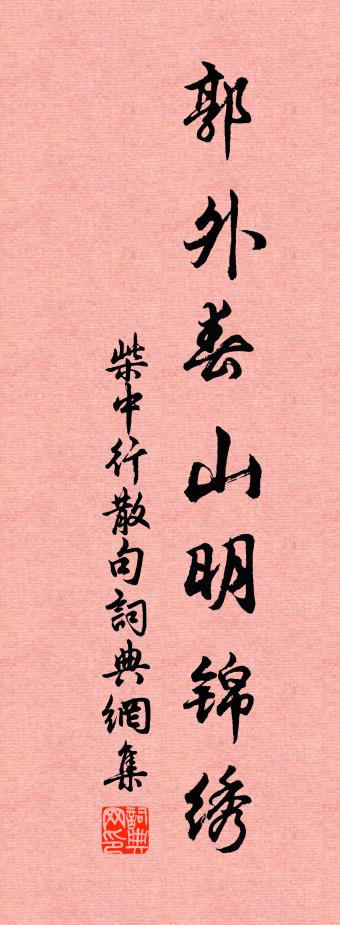 郭外春山明锦绣
柴中行散句詞典網集
詞典网印